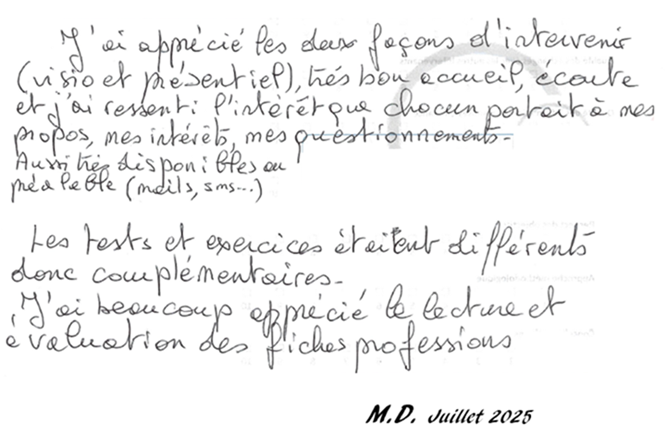 J'ai apprécié les deux façons d'intervenir
(visio et présentiel), très bon accueil, écoute
et j'ai ressenti l'intérêt que chacun portait à mes
propos, mes intérêts, mes questionnements.
Aussi très disponibles au
préalable (mails, sms...)
Les tests et exercices étaient différents
donc complémentaires.
J'ai beaucoup apprécié la lecture et
évaluation des fiches professions
M.D. Juillet 2025